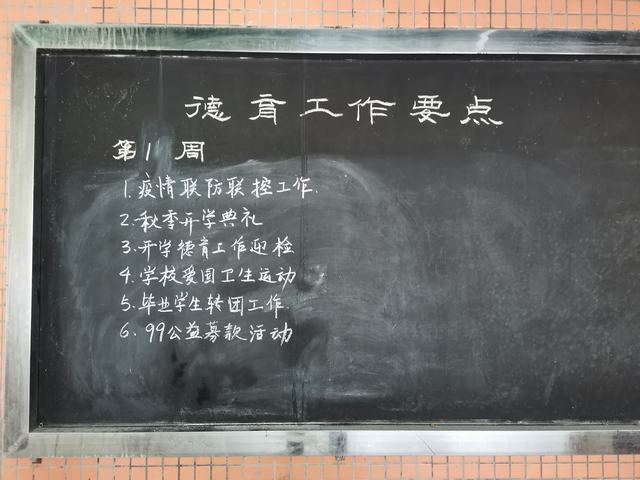 德育工作要点
第1周
1.疫情联防联控工作.
2.秋季开学典礼
3.开学德育工作迎检
4.学校爱国卫生运动
5.毕业学生转团工作.
6.99公益募款活动